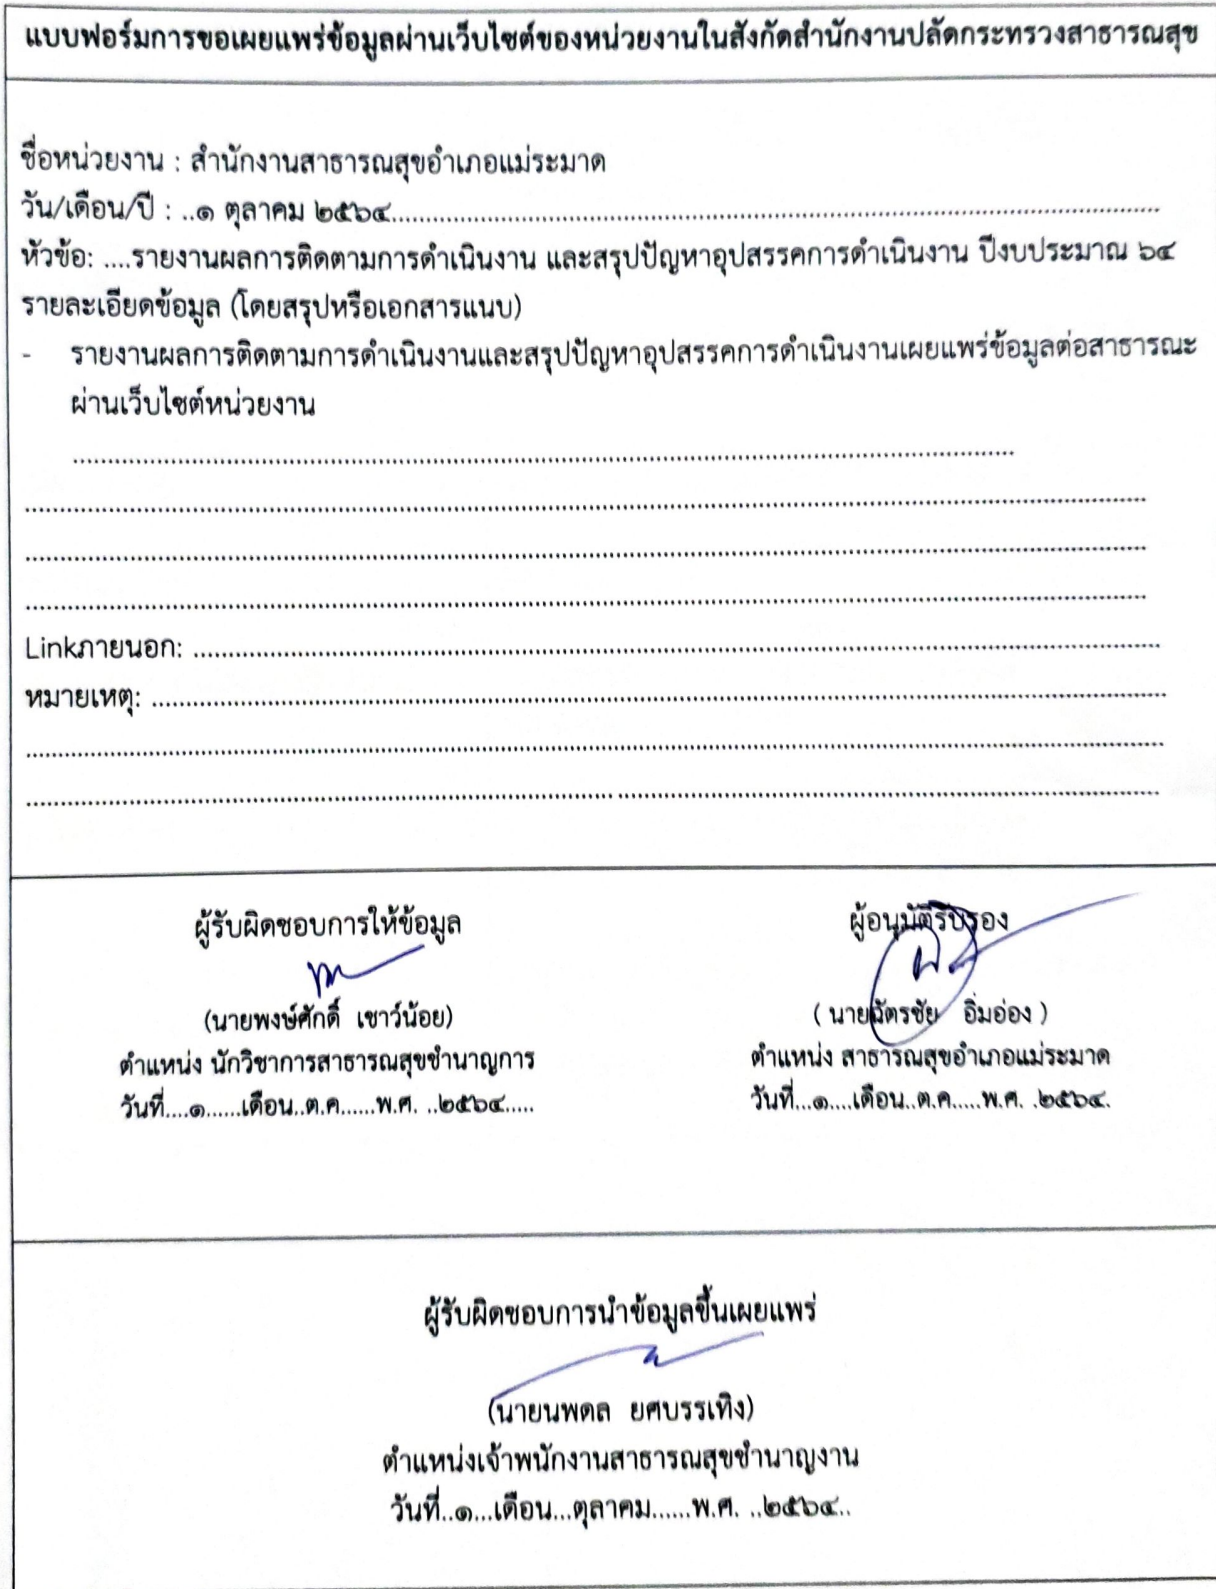 แบบฟอร์มการขอเผยแพร่ข้อมูลผ่านเว็บไซต์ของหน่วยงานในสังกัดสำนักงานปลัดกระทรวงสาธารณสุข
ชื่อหน่วยงาน : สำนักงานสาธารณสุขอำเภอแม่ระมาด
วัน/เดือน/ปี : ..๑ ตุลาคม ๒๕๖๔..........
หัวข้อ: ....รายงานผลการติดตามการดำเนินงาน และสรุปปัญหาอุปสรรคการดำเนินงาน ปีงบประมาณ ๖๔
รายละเอียดข้อมูล (โดยสรุปหรือเอกสารแนบ)
- รายงานผลการติดตามการดำเนินงานและสรุปปัญหาอุปสรรคการดำเนินงานเผยแพร่ข้อมูลต่อสาธารณะ
ผ่านเว็บไซต์หน่วยงาน
Linkภายนอก: ..........
หมายเหตุ: ..........
ผู้รับผิดชอบการให้ข้อมูล
(นายพงษ์ศักดิ์ เชาว์น้อย)
ตำแหน่ง นักวิชาการสาธารณสุขชำนาญการ
วันที่....๑......เดือน..ต.ค......พ.ศ. ..๒๕๖๔.....
ผู้อนุมัติรับรอง
( นายฉัตรชัย อิ่มอ่อง )
ตำแหน่ง สาธารณสุขอำเภอแม่ระมาด
วันที่...๑....เดือน..ต.ค.....พ.ศ. .๒๕๖๔.
ผู้รับผิดชอบการนำข้อมูลขึ้นเผยแพร่
(นายนพดล ยศบรรเทิง)
ตำแหน่งเจ้าพนักงานสาธารณสุขชำนาญงาน
วันที่..๑...เดือน...ตุลาคม......พ.ศ. ..๒๕๖๔..